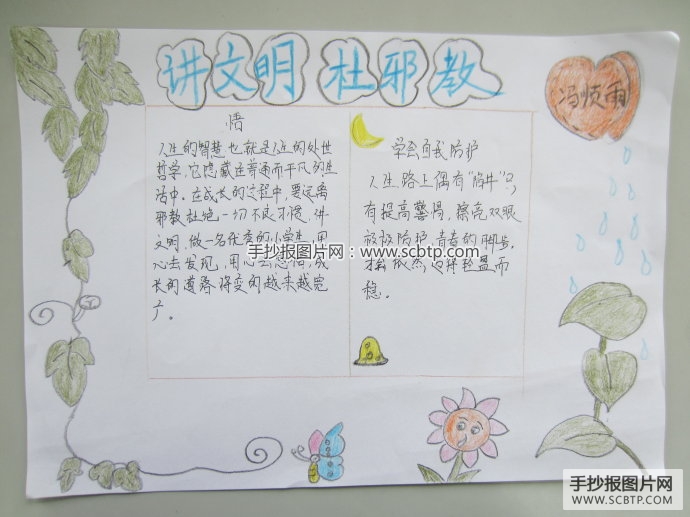 讲文明 杜邪教
冯烦雨
情
人生的智慧也就是人生的处世
哲学,它隐藏在普通而平凡的生
活中。在成长的过程中,要远离
邪教杜绝一切不良习惯,讲
文明,做一名优秀的小学生,用
心去发现,用心去感悟,成
长的道路将变的越来越宽
广。
学会自我防护
人生路上偶有“陷井”只
有提高警惕,擦亮双眼
积极防护 青春的脚步,
才能依然 轻盈而
稳。
手抄报图片网:www.scbtp.com
手抄报图片网
WWW.SCBTP.COM